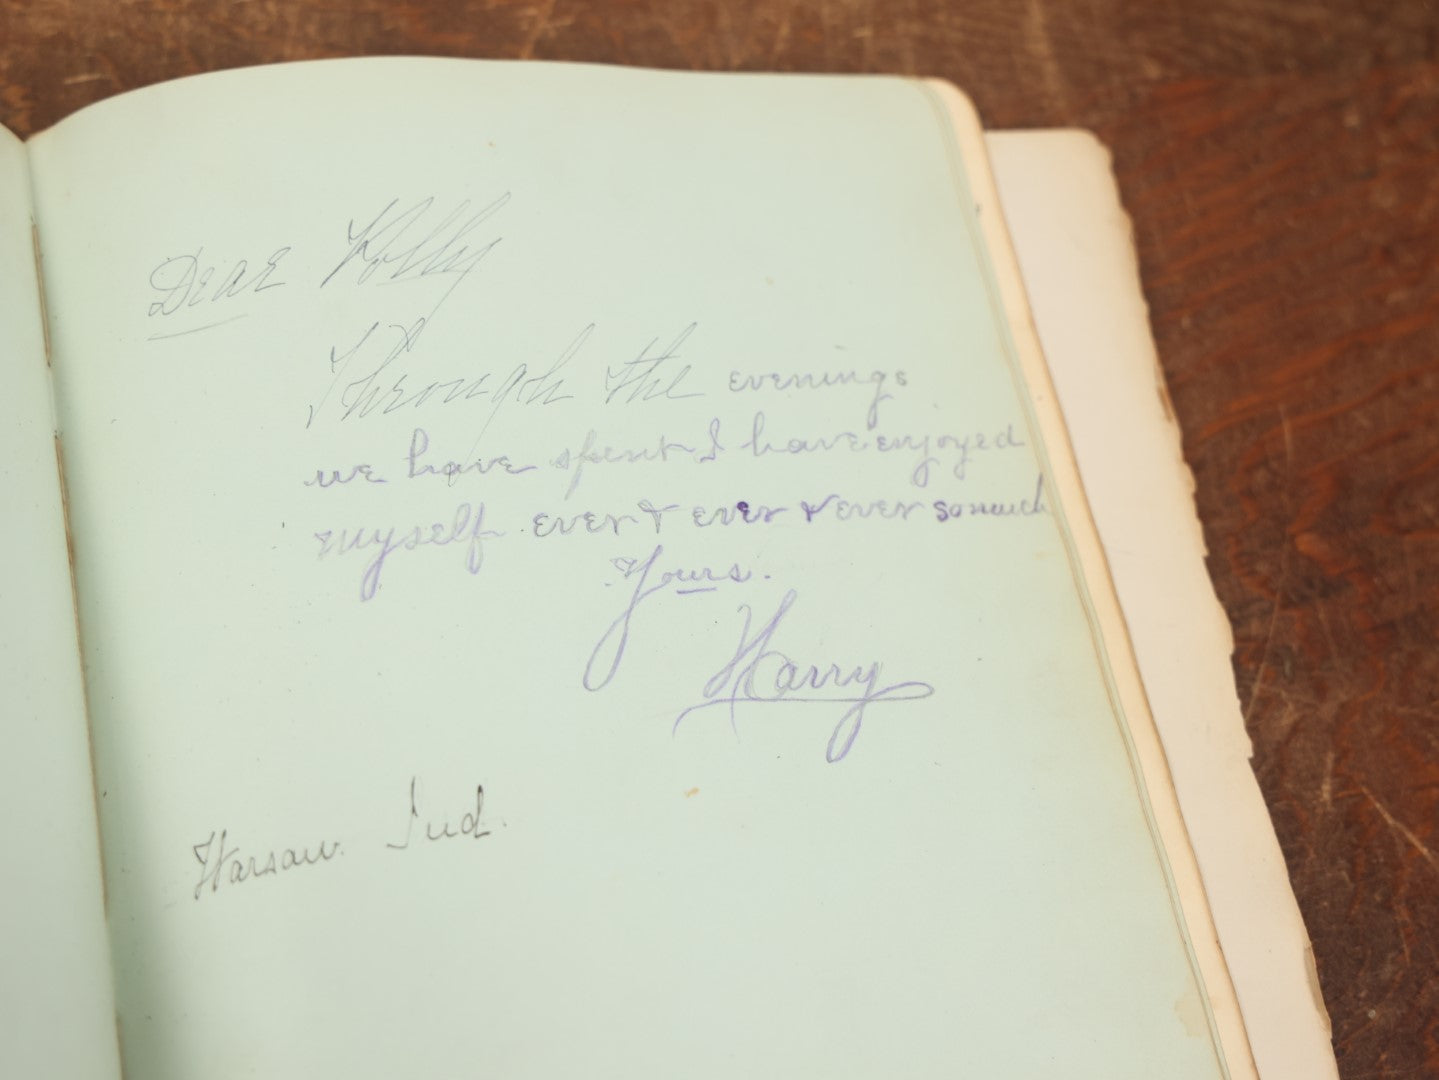 Dear Kolly
Through the evenings
we have spent I have enjoyed
myself ever & ever & ever so much
Yours.
Harry
Warsaw. Ind.